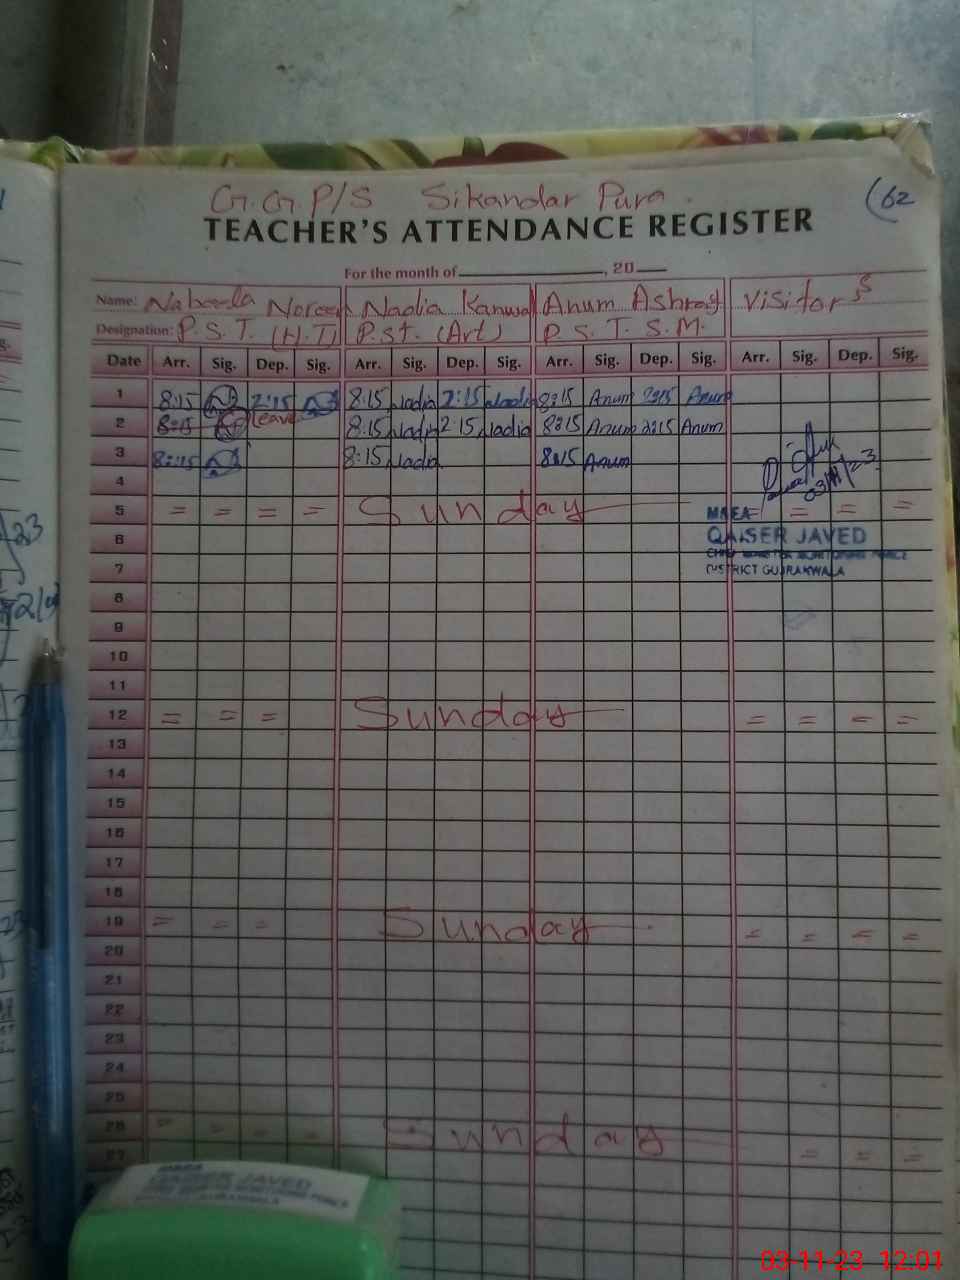 G.G.P/S Sikandar Pura
(62
TEACHER'S ATTENDANCE REGISTER
For the month of , 20
Name: Nabeela Noreen Nadia Kanwal Anum Ashraf Visitor's
Designation: P.S.T. (H.T) P.St. (Art) P. S. T. S. M.
Date Arr. Sig. Dep. Sig. Arr. Sig. Dep. Sig. Arr. Sig. Dep. Sig. Arr. Sig. Dep. Sig.
1 8:15 2:15 8:15 Nadia 2:15 Nadia 8:15 Anum 2:15 Anum
2 8:15 leave 8:15 Nadia 2:15 Nadia 8:15 Anum 2:15 Anum
3 8:15 8:15 Nadia 8:15 Anum
03/11/23
4
5 = = = = Sunday = = =
MAEA
6
QAISER JAVED
7
DISTRICT GUJRANWALA
8
9
10
11
12 = = = Sunday = = = =
13
14
15
16
17
18
19 = = = Sunday = = = =
20
21
22
23
24
25
26 = = = = Sunday
27 = = =
QAISER JAVED
03-11-23 12:01